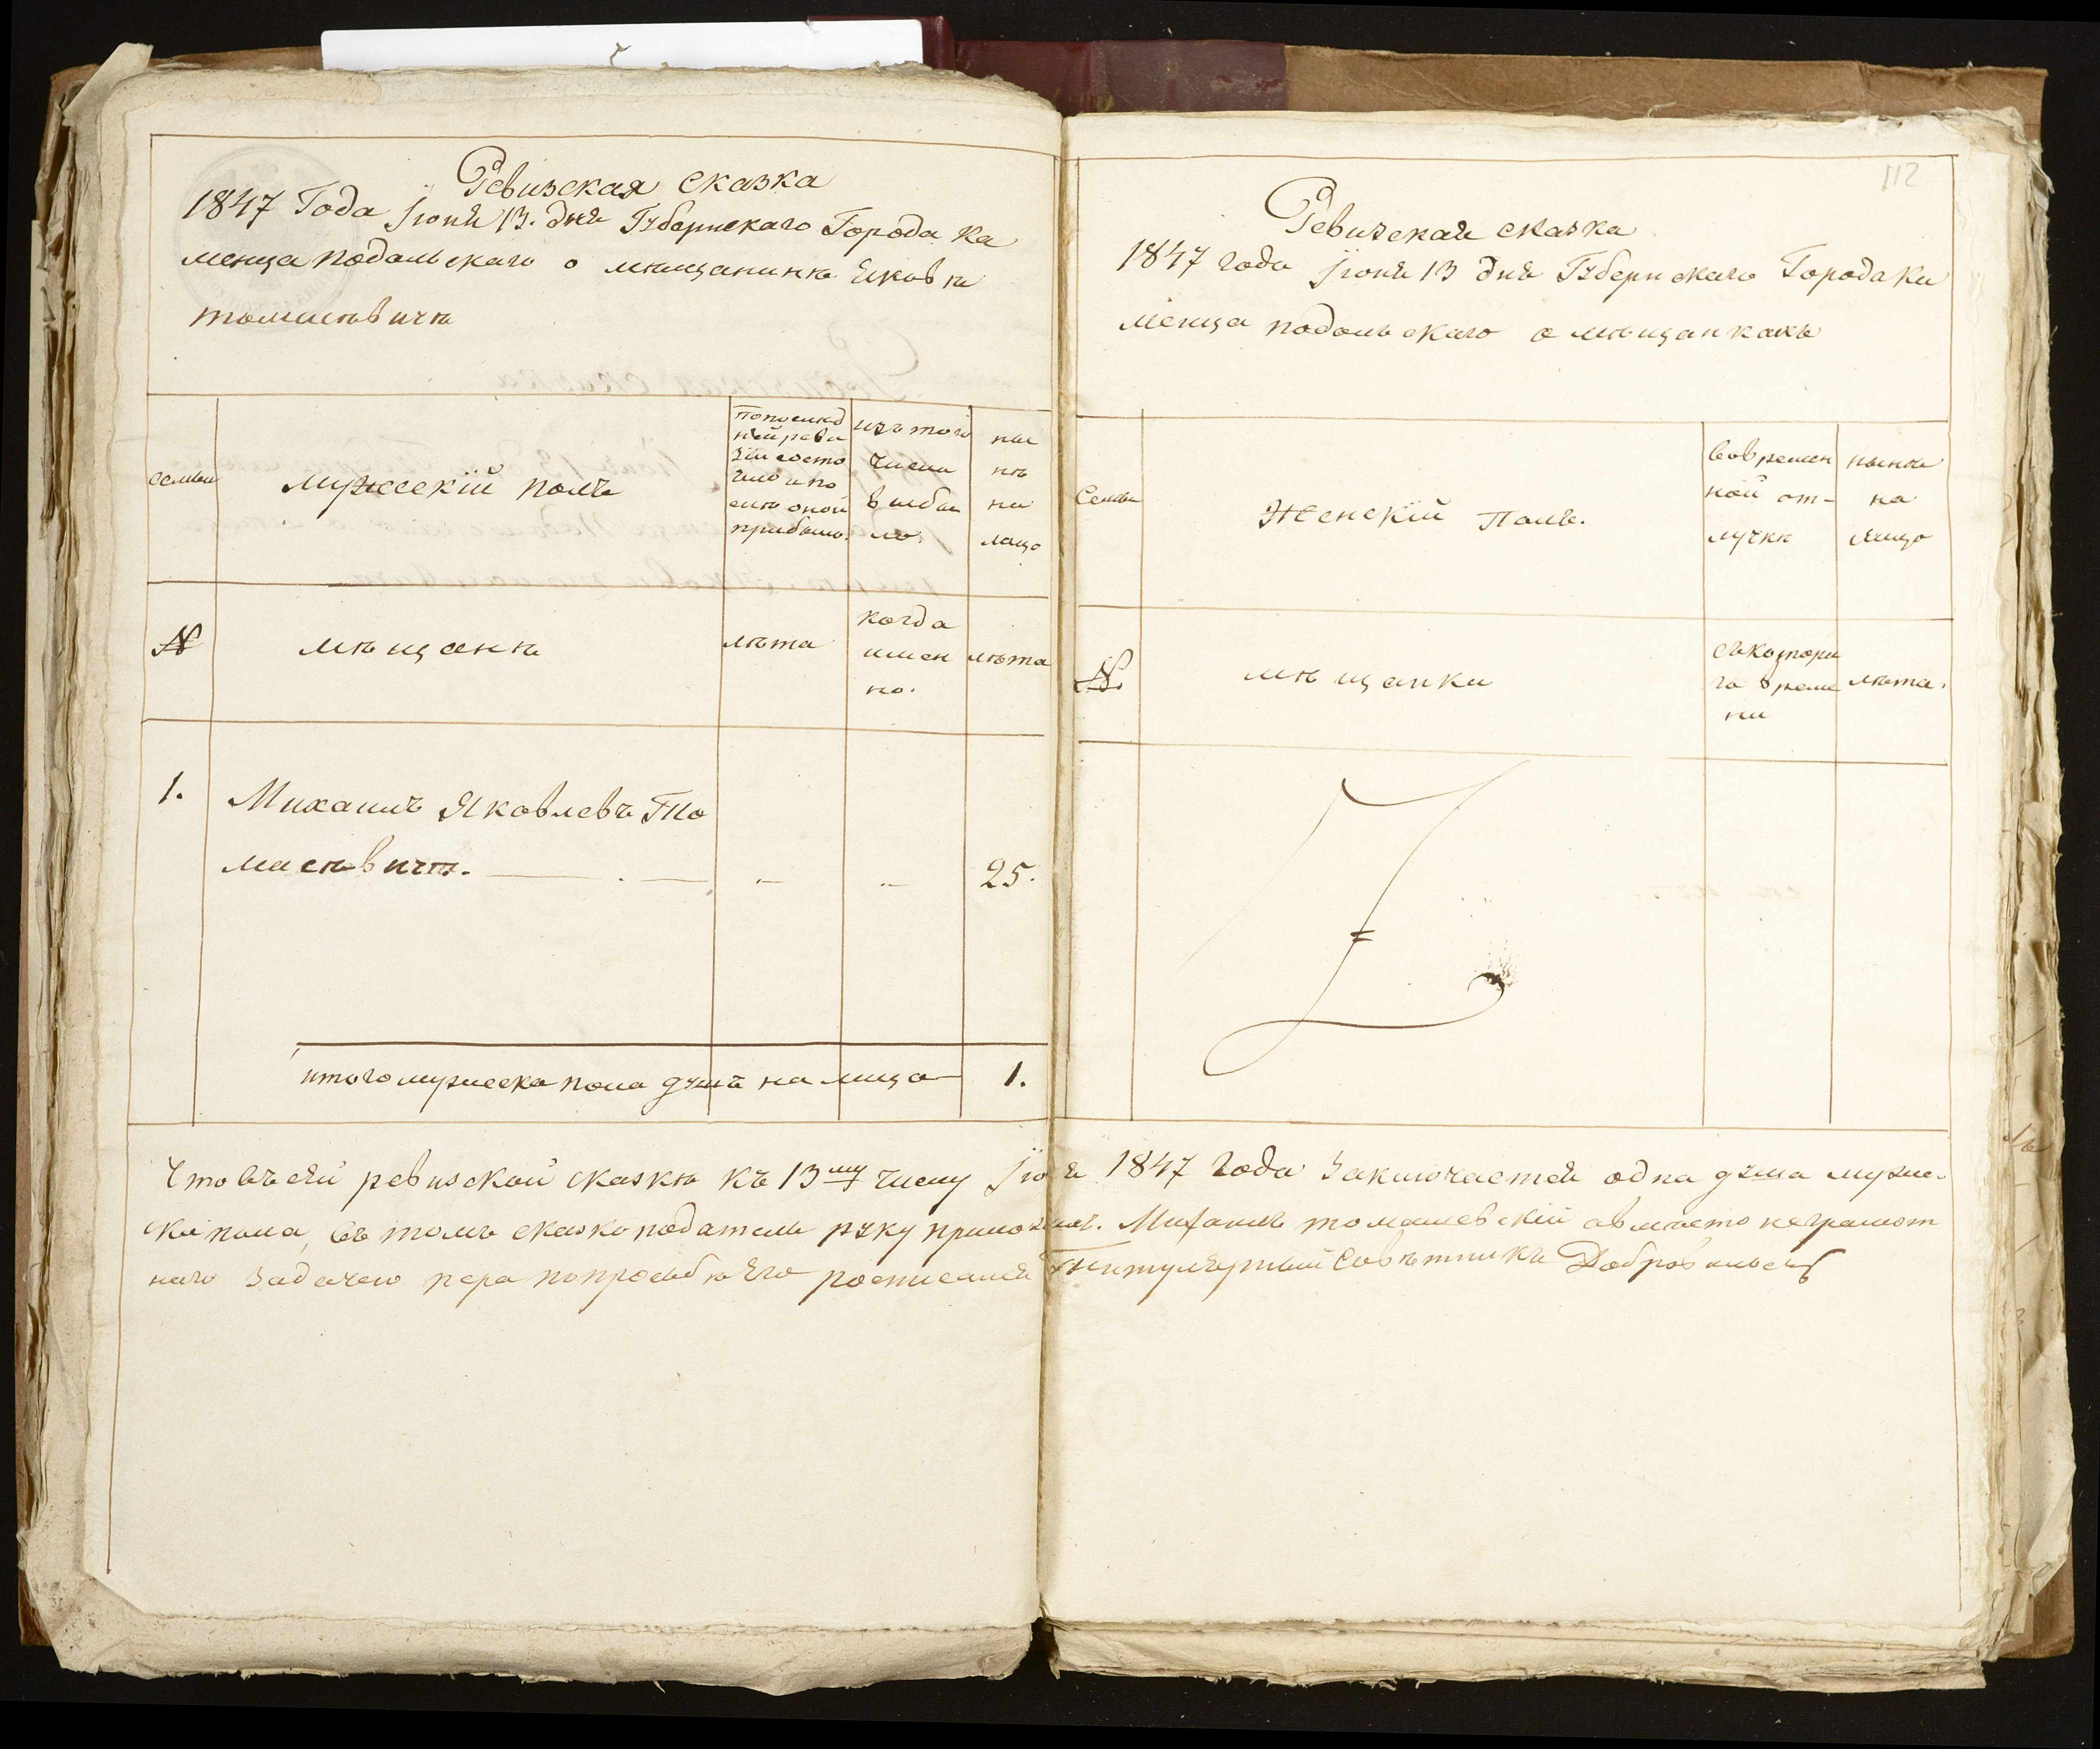 Ревизская сказка
1847 Года Іюня 13. дня Губернскаго Города Ка
менца подольскаго о мѣщанинѣ Яковѣ
томасѣвичѣ
семьи
мужескій полъ
попослѣд
нѣй реви
зіи состо
яло и по
слѣ оной
прибыло.
изъ того
числа
выбы
ло.
ны
нѣ
на
лицо
№
мѣщанѣ
лѣта
когда
имен
но.
лѣта
1. Михаилъ Яковлевъ То
масѣвичъ. 25.
итого мужеска пола душъ на лицо 1.
112
Ревизская сказка
1847 года Іюня 13 дня Губернскаго Города Ка
менца подольскаго о мѣщанкахъ
Семьи
Женскій Полъ.
Вовремен
ной от-
лучкѣ
нынѣ
на
лицо
№.
мѣщанки
съкотора
го време
ни
лѣта.
Что въ сей ревизской сказкѣ къ 13му числу Іюня 1847 года Заключается одна душа муже-
ска пола, въ томъ сказкоподатель руку приложилъ. Михаилъ томашевскій авместо неграмот
наго Задачею пера попрозьбѣ Его росписался Титулярный Совѣтникъ